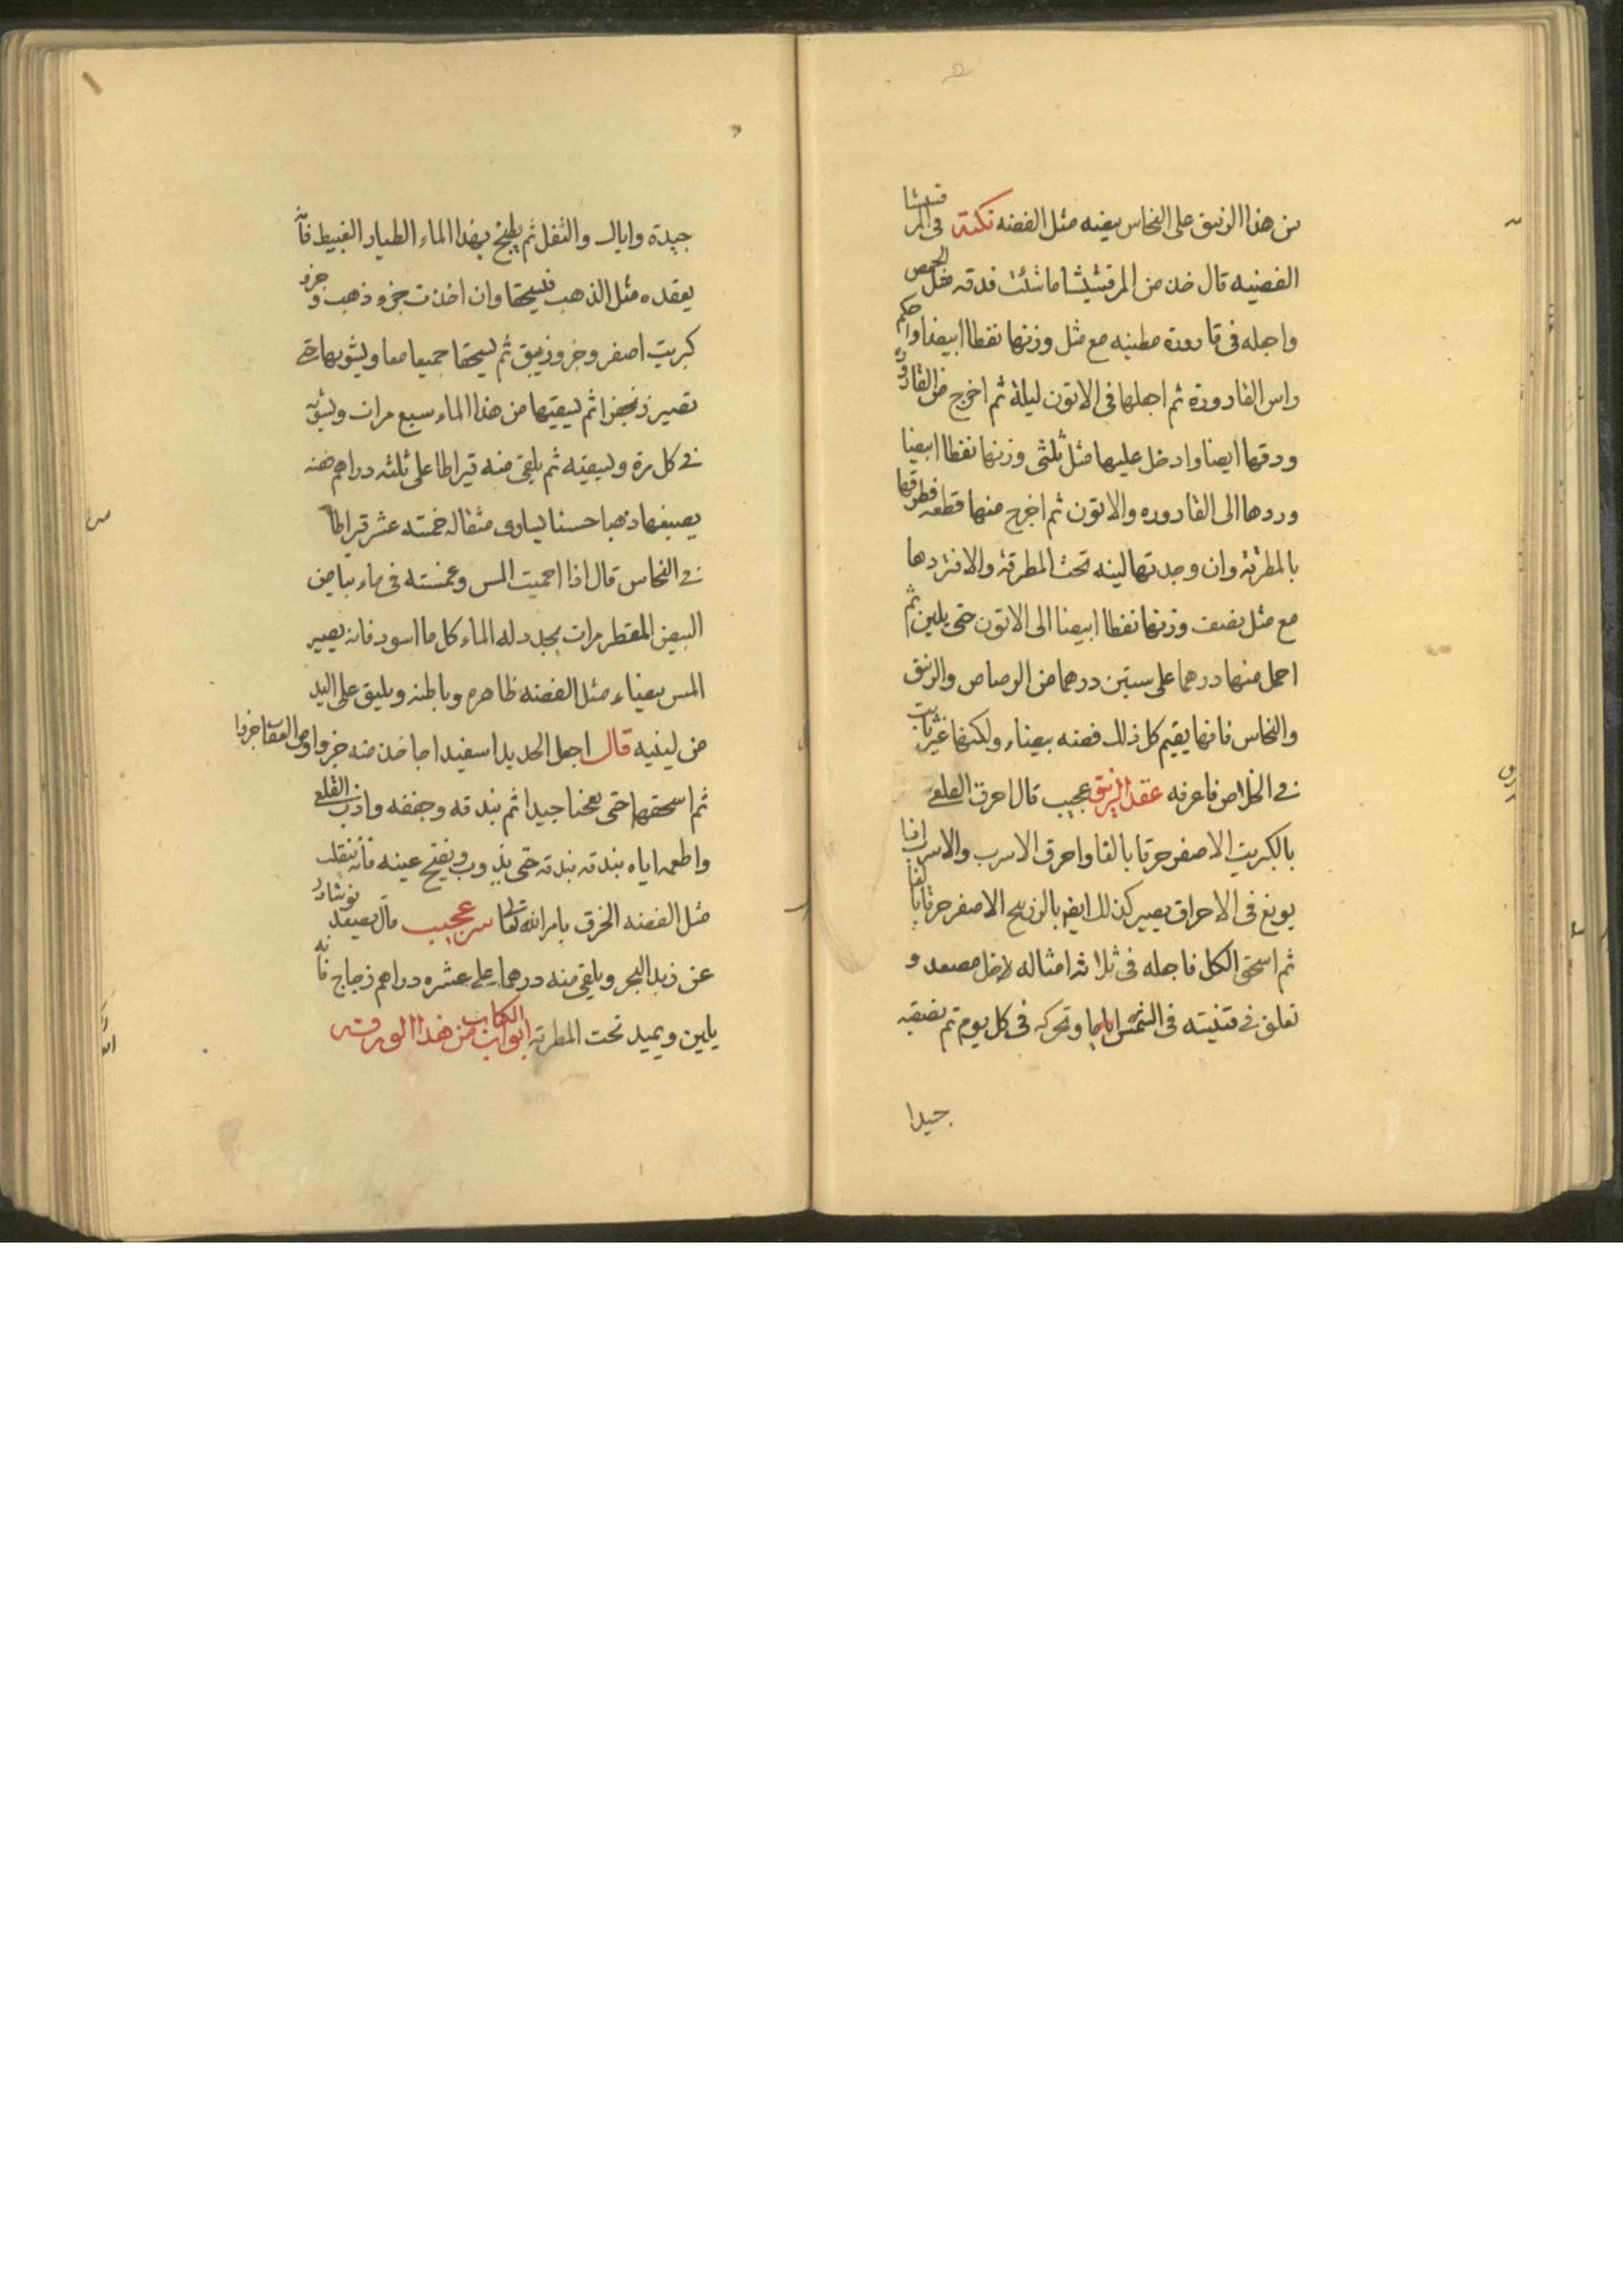 من هذا الزيبق على النحاس يبيضه مثل الفضه نكتة فى المرقشيثا
الفضيه قال خذ من المرقشيشا ما شئت فدقه مثل الحمص
واجله فى قارورة مطينه مع مثل وزنها نفطا ابيضا واحكم
راس القارورة ثم اجعلها فى الاتون ليلة ثم اخرج من القارورة
ودقها ايضا وادخل عليها مثل ثلثى وزنها نفطا ابيضا
وردها الى القاروره والاتون ثم اخرج منها قطعه فطرقها
بالمطرقة وان وجدتها لينه تحت المطرقة والا فتردها
مع مثل نصف وزنها نفطا ابيضا الى الاتون حتى يلين ثم
احمل منها درهما على ستين درهما من الرصاص والزيبق
والنحاس فانها يقيم كل ذلك فضه بيضاء ولكنها غير ثابت
فى الخلاص فاعرفه عقد الزيبق عجيب قال احرق القلعى
بالكبريت الاصفر حرقا بالغا واحرق الاسرب والاسرب اذا
يوبغ فى الاحراق يصير كذلك ايضا بالزرنيخ الاصفر حرقا بالغا
ثم اسحق الكل فاجله فى ثلاثة امثاله لاخل مصعد و
تعلق فى قنينه فى الشمس اياما وتحركه فى كل يوم ثم تصفيه
جيدا
جيدة واياك والثفل ثم يطبخ بهذا الماء الطيار الغبيط فانه
يعقده مثل الذهب فليسحقا وان اخذت جزو ذهب وجزو
كبريت اصفر وجزو زيبق ثم ليسحقا جميعا معا وليشويها حتى
تصير زنجفرا ثم ليسقيها من هذا الماء سبع مرات وليشويه
فى كل مرة وليسقيه ثم يلقى منه قيراطا على ثلثه دراهم فضه
يصبغها ذهبا حسنا ليساوى مثقاله خمسته عشر قيراطا
فى النحاس قال اذا احميت المس وغمسته فى ماء بياض
البيض المقطر مرات يجدد له الماء كل ما اسود فانه يصير
المس بيضاء مثل الفضه ظاهره وباطنه ويليق على اليد
من لينيه قال اجعل الحديد اسفيداجا خذ منه جزوا ومن العقاب جزوا
ثم اسحقهما حتى يعجنا جيدا ثم بندقه وجففه واذب القلعى
واطعمه اياه بندقه بندقه حتى يذوب ويفتح عينه فانه ينقلب
مثل الفضه الخرق بامر الله تعالى سر عجيب قال يصعد نوشادر
عن زبد البحر ويلقى منه درهما على عشره دراهم زجاج فانه
يلين ويميد تحت المطرقه ابواب الكتاب من هذا الورقه